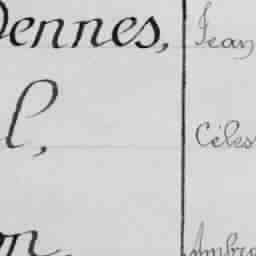 Dennes, Jean
l, Céles
on Ambro